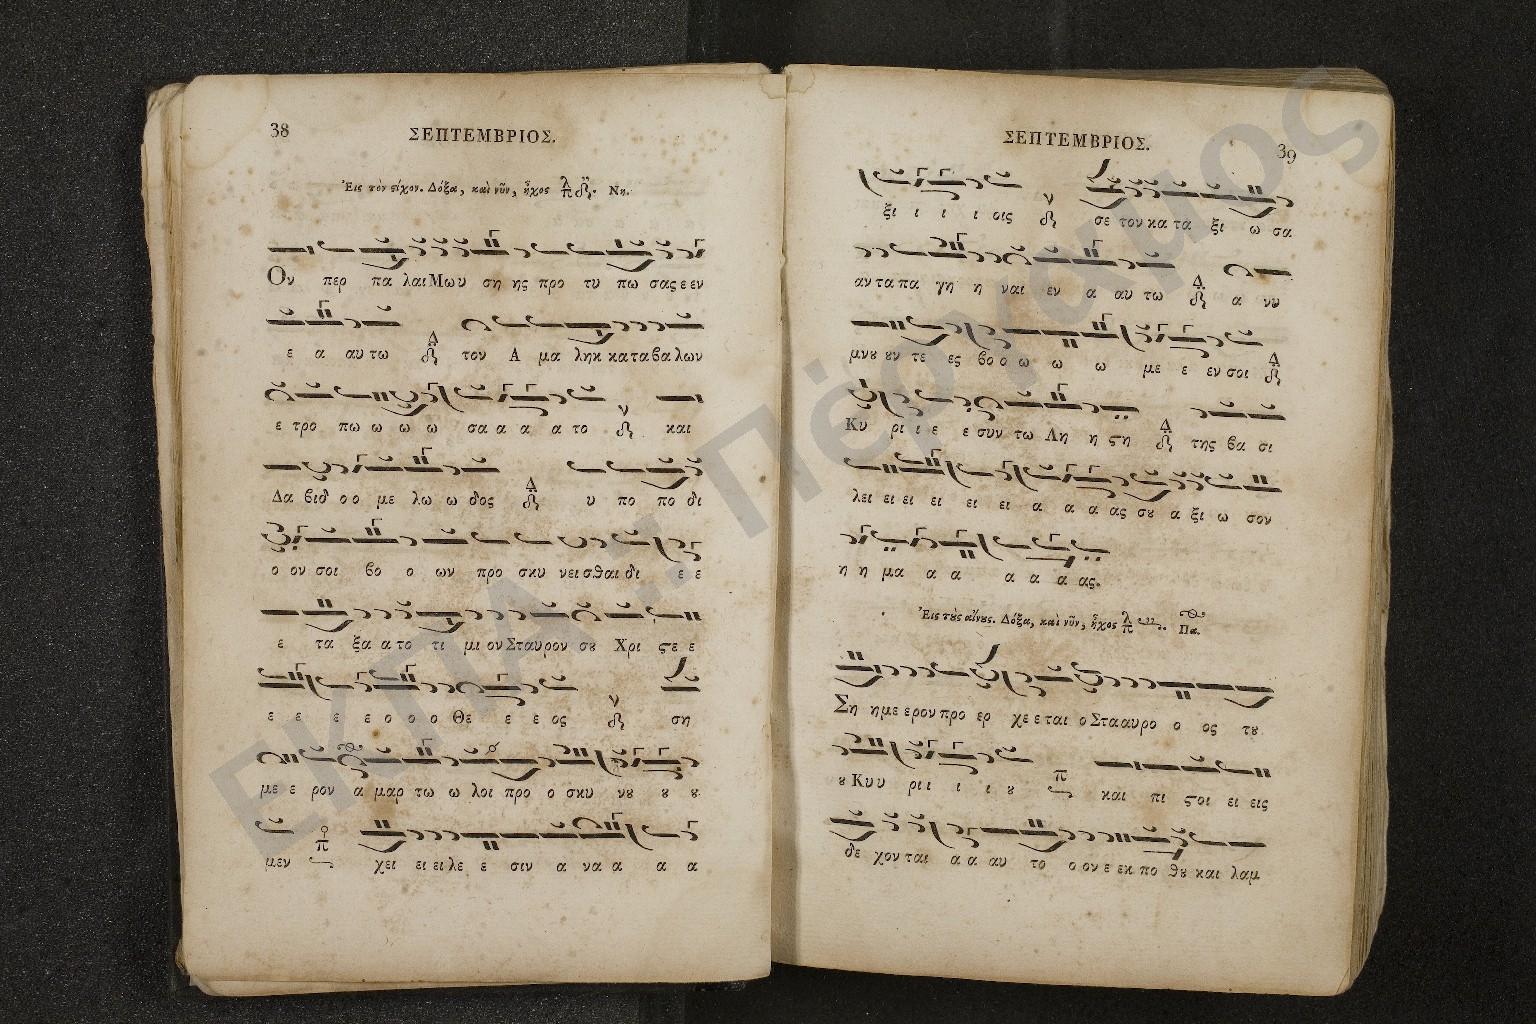 38
ΣΕΠΤΕΜΒΡΙΟΣ.
Ἐις τὸν ϛίχον. Δόξα, καὶ νῦν, ἦχος λ π Νη.
Ον περ πα λαι Μωυ ση ης προ τυ πω σας ε εν
ε α αυ τω Δ τον Α μα ληκ κα τα βα λων
ε τρο πω ω ω ω σα α α α το ν και
Δα βιδ ο ο με λω ω δος Δ υ πο πο δι
ο ον σοι βο ο ων προ σκυ νει σθαι δι ε ε
ε τα ξα α το τι μι ον Σταυρον σȣ Χρι ϛε ε
ε ε ε ε ο ο ο Θε ε ε ος ν ση
με ε ρον α μαρ τω ω λοι προ ο σκυ νȣ ȣ ȣ
μεν π χει ει ει λε ε σιν α να α α α
39
ΣΕΠΤΕΜΒΡΙΟΣ.
ξι ι ι ι οις ν σε τον κα τα ξι ω σα
αν τα πα γη η ναι εν α αυ τω Δ α νυ
μνȣ ȣν τε ες βο ο ω ω ω με ε εν σοι Δ
Κυ ρι ι ε ε συν τω Λη η ϛη Δ της βα σι
λει ει ει ει ει ει α α α ας σȣ α ξι ω σον
η η μα α α α α α ας.
Ἐις τȣ̀ς αἴνȣς. Δόξα, καὶ νῦν, ἦχος λ π Πα.
Ση η με ε ρον προ ερ χε ε ται ο Στα αυρο ο ος τȣ
ȣ Κυ υ ρι ι ι ι ȣ π και πι ϛοι ει εις
δε χον ται α α αυ το ο ον ε εκ πο θȣ και λαμ
ΕΚΠΑ .:. Πέργαμος